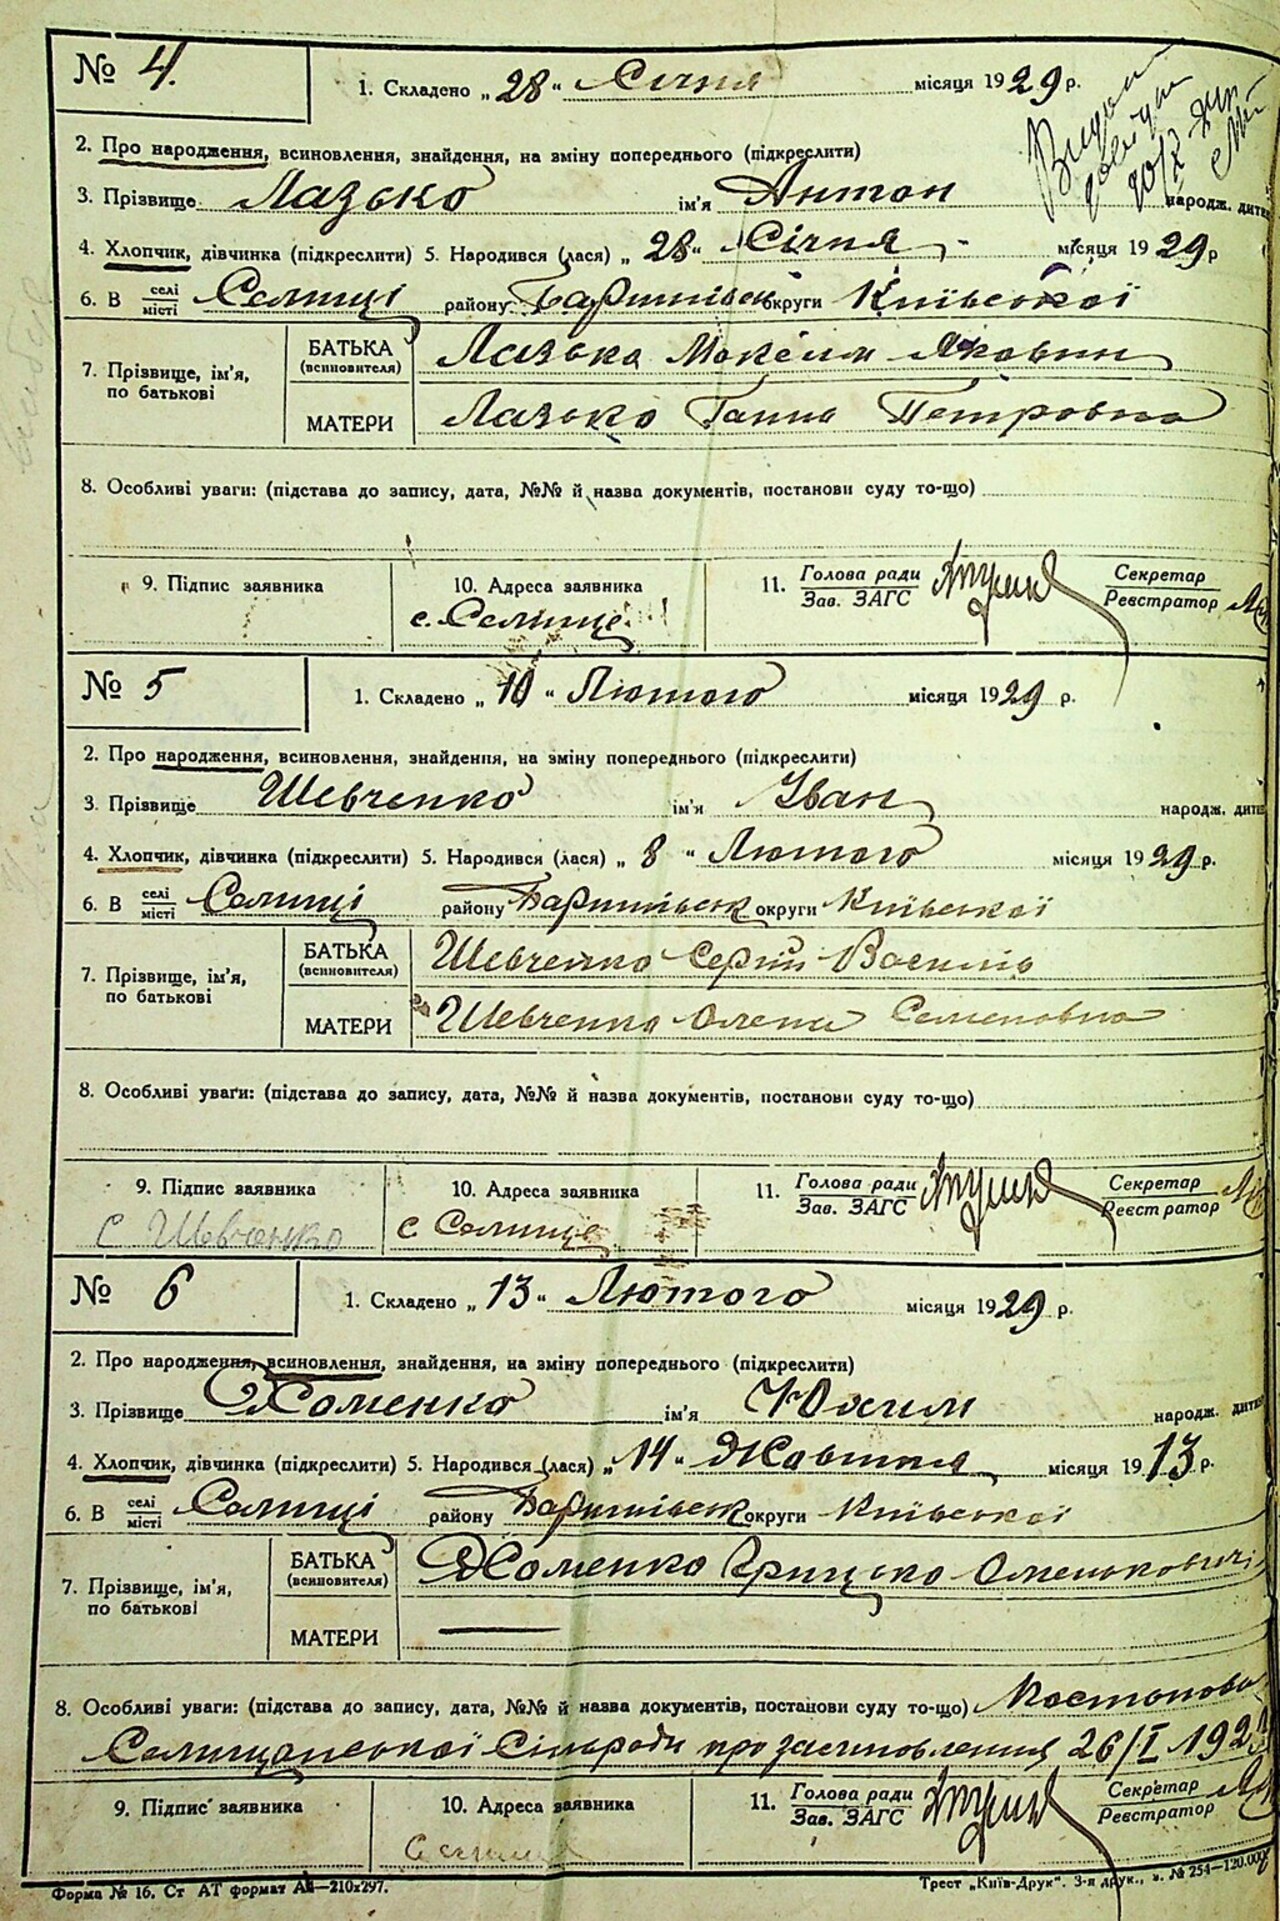 № 4.
1. Складено „ 28 “ Січня місяця 1929 р.
2. Про народження, всиновлення, знайдення, на зміну попереднього (підкреслити)
3. Прізвище Лазько ім'я Антон народж. дитин
4. Хлопчик, дівчинка (підкреслити) 5. Народився (лася) „ 28 “ Січня місяця 1929 р
6. В селі місті Селищі району Баришівськ округи Київської
7. Прізвище, ім'я, по батькові
БАТЬКА (всиновителя) Лазько Максим Якович
МАТЕРИ Лазько Ганна Петровна
8. Особливі уваги: (підстава до запису, дата, №№ й назва документів, постанови суду то-що)
9. Підпис заявника 10. Адреса заявника 11. Голова ради Зав. ЗАГС Секретар Реєстратор
с. Селище
№ 5
1. Складено „ 10 “ Лютого місяця 1929 р.
2. Про народження, всиновлення, знайдення, на зміну попереднього (підкреслити)
3. Прізвище Шевченко ім'я Іван народж. дитин
4. Хлопчик, дівчинка (підкреслити) 5. Народився (лася) „ 8 “ Лютого місяця 1929 р.
6. В селі місті Селищі району Баришівськ округи Київської
7. Прізвище, ім'я, по батькові
БАТЬКА (всиновителя) Шевченко Сергій Василів
МАТЕРИ Шевченко Олена Семеновна
8. Особливі уваги: (підстава до запису, дата, №№ й назва документів, постанови суду то-що)
9. Підпис заявника 10. Адреса заявника 11. Голова ради Зав. ЗАГС Секретар Реєстратор
С Шевченко с Селище
№ 6
1. Складено „ 13 “ Лютого місяця 1929 р.
2. Про народження, всиновлення, знайдення, на зміну попереднього (підкреслити)
3. Прізвище Хоменко ім'я Юхим народж. дитин
4. Хлопчик, дівчинка (підкреслити) 5. Народився (лася) „ 14 “ Жовтня місяця 1913 р.
6. В селі місті Селищі району Баришівськ округи Київської
7. Прізвище, ім'я, по батькові
БАТЬКА (всиновителя) Хоменко Грицько Омелькович
МАТЕРИ —
8. Особливі уваги: (підстава до запису, дата, №№ й назва документів, постанови суду то-що) Постанова
Селищанської Сільради про засиновлення 26/I 192
9. Підпис заявника 10. Адреса заявника 11. Голова ради Зав. ЗАГС Секретар Реєстратор
Форма № 16. Ст АТ формат А4—210х297.
Трест „Київ-Друк“. 3-я друк., з. № 254—120.000